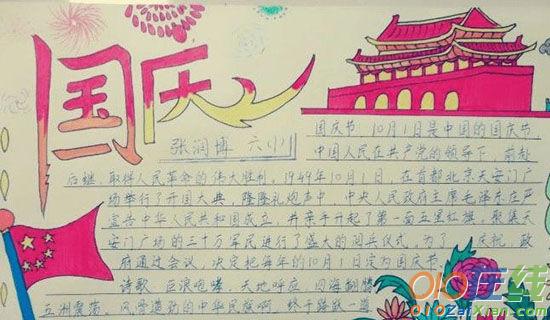 国庆
张润博 六(1)
国庆节,10月1日是中国的国庆节,
中国人民在共产党的领导下,前赴
后继,取得人民革命的伟大胜利,1949年10月1日,在首都北京天安门广
场举行了开国大典,隆隆礼炮声中,中央人民政府主席毛泽东庄严
宣告中华人民共和国成立,并亲手升起了第一面五星红旗,聚集天
安门广场的三十万军民进行了盛大的阅兵仪式,为了 庆祝,政
府通过会议,决定把每年的10月1日定为国庆节.
诗歌:巨浪咆哮,天地呼应,四海翻腾
五洲震荡,风雪造就的中华民族啊,终于踏
在线
ZaiXian.com